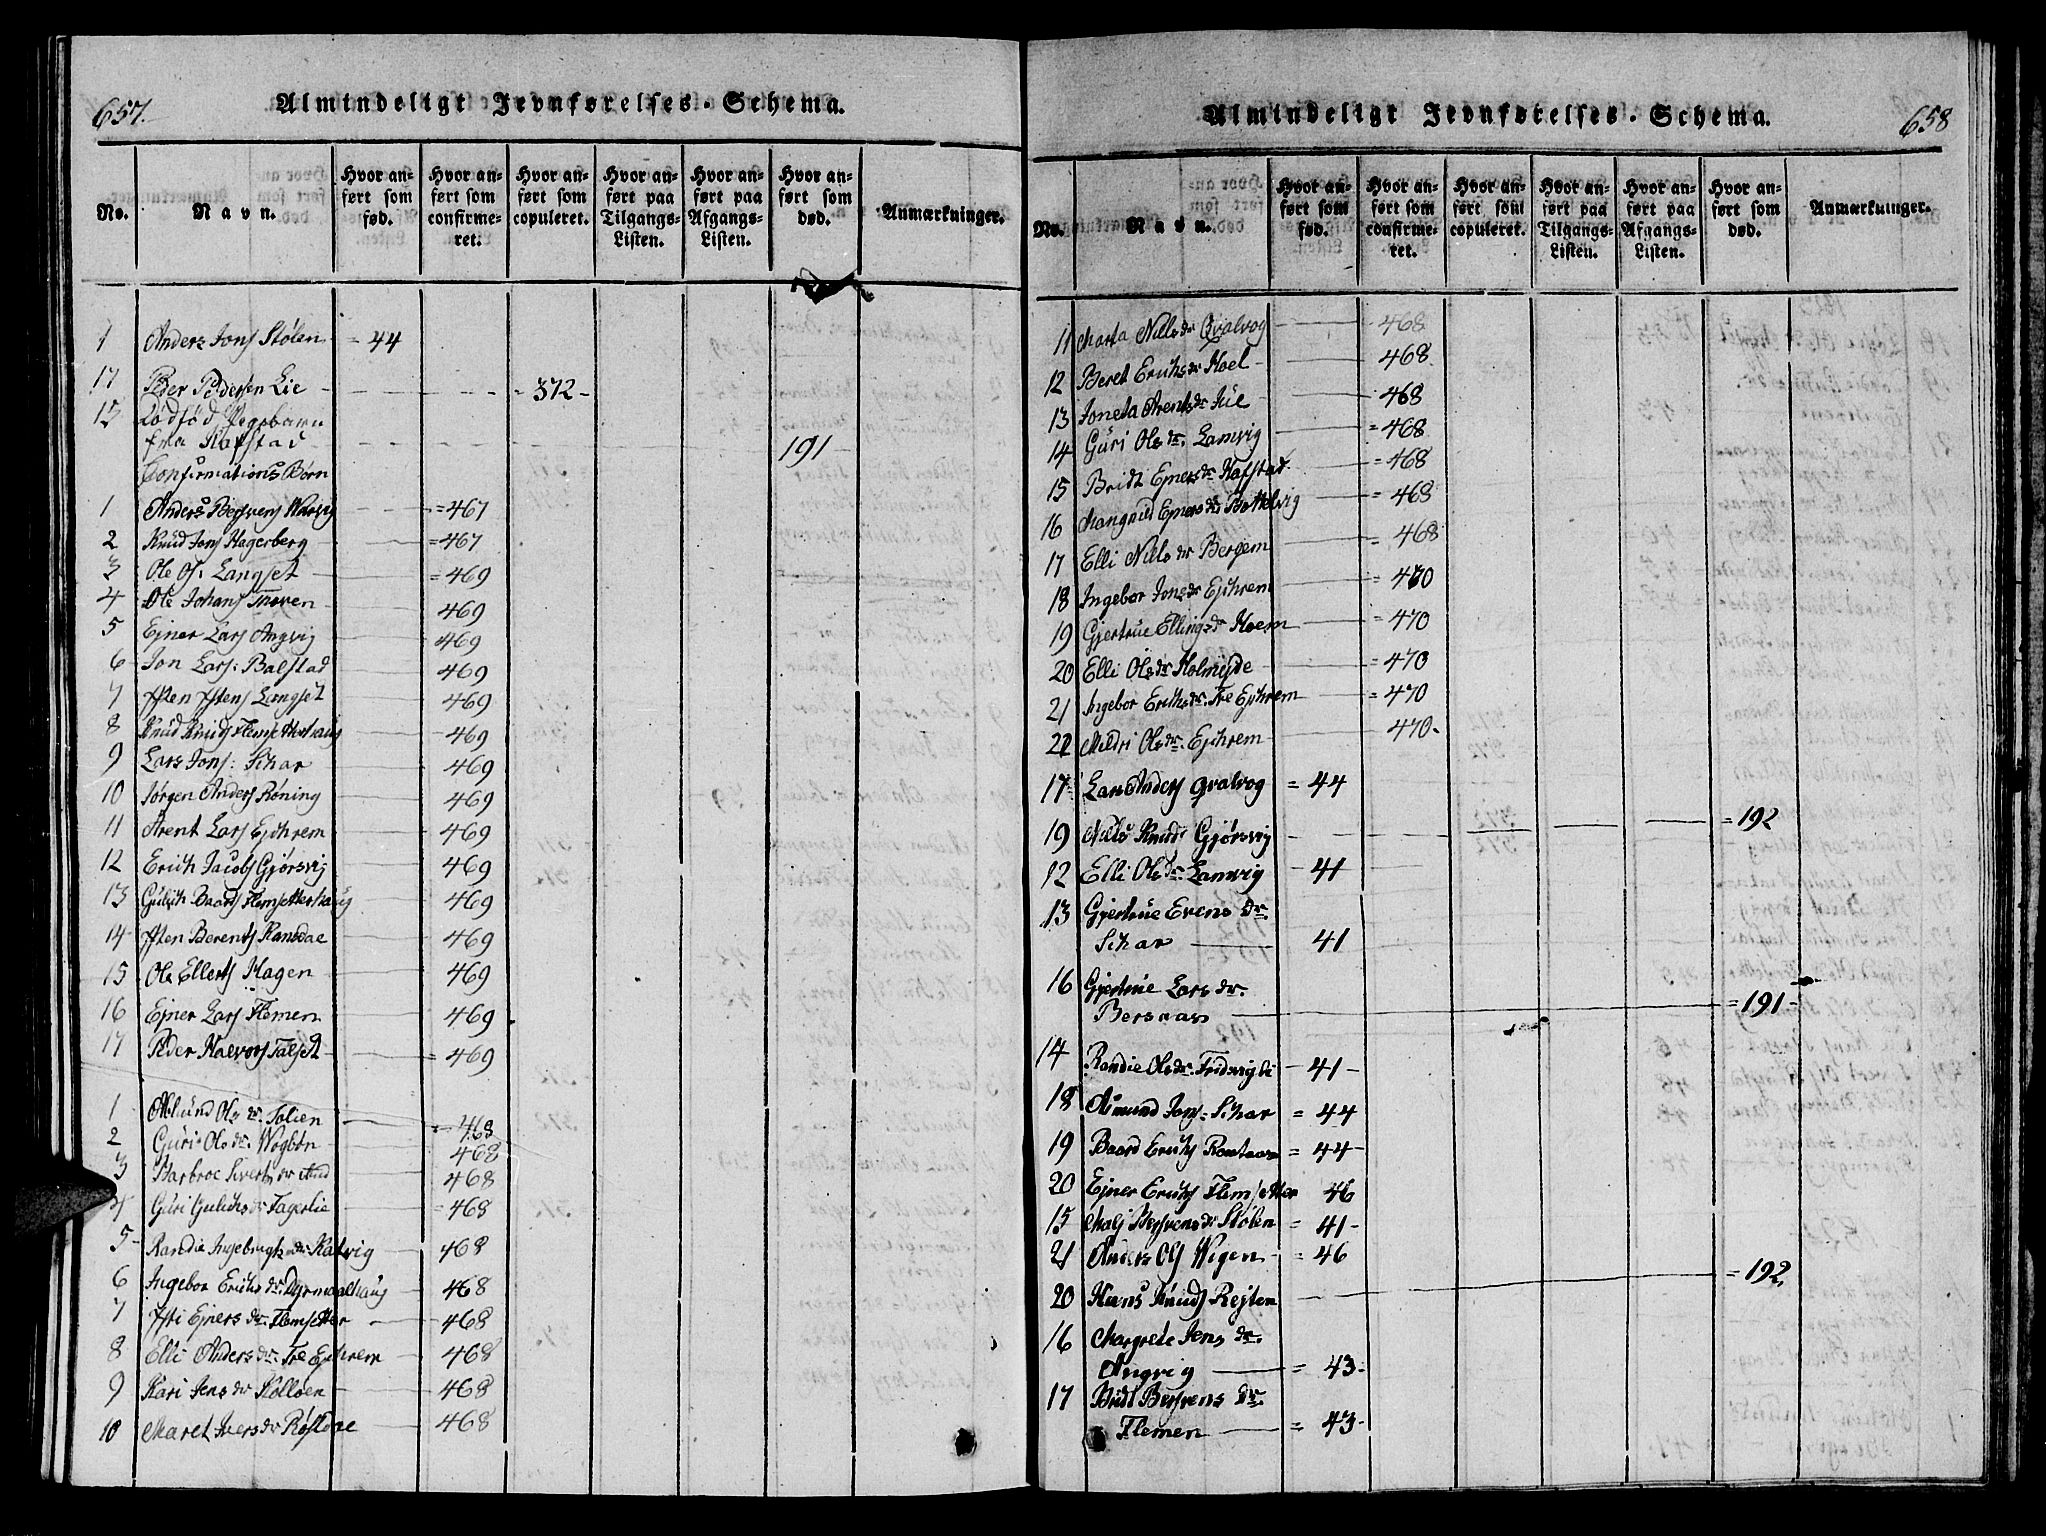 657.
Almindeligt Jevnførelses-Schema.
No.
Navn.
Hvor anført som fød.
Hvor anført som confirmeret.
Hvor anført som copuleret.
Hvor anført paa Tilgangs-Listen.
Hvor anført paa Afgangs-Listen.
Hvor anført som død.
Anmærkninger.
1 Anders Jons Stølen = 44
17 Peder Pedersen Lie = 372 -
15 Dødfød Pigebarn
fra Kafstad 191
Confirmations Børn
1 Anders = 467
2 Knud Jons Hagerberg = 467
3 Ole Ols: Langset = 469
4 Ole Johans 469
5 Ejner Lars Angvig 469
6 Jon Lars: Balstad 469
7 Langset 469
8 Knud Knuds Flemsetterhaug 469
9 Lars Jons: Schar 469
10 Jørgen Anders Røning 469
11 Arent Lars Ejchrem 469
12 Erich Jacobs Gjørsvig 469
13 Gulich Baards Flemsetterhaug 469
14 Berents Ransdae 469
15 Ole Ellerts Hagen 469
16 Ejner Lars Flemen 469
17 Peder Halvors Talset = 469
1 Ols dr. = 468
2 Guri Ols dr. Wogbøn 468
3 Barbroe Siverts dr 468
4 Guri Gulichs dr Fagerlie = 468
5 Randie Ingebrigts dr. 468
6 Ingebor Erichs dr. 468
7 Ejners dr. Flemsetter 468
8 Elli Anders dr. Tre Ejchrem 468
9 Kari Jens dr 468
10 Maret Ivers dr 468
658
Almindeligt Jevnførelses-Schema.
No.
Navn.
Hvor anført som fød.
Hvor anført som confirmeret.
Hvor anført som copuleret.
Hvor anført paa Tilgangs-Listen.
Hvor anført paa Afgangs-Listen.
Hvor anført som død.
Anmærkninger.
11 Marta Nils dr Qvalvog 468
12 Beret Erichs dr Hoel 468
13 Joneta Arents dr 468
14 Guri Ols dr. Lamvig = 468
15 Bridt Ejners dr Kafstad = 468
16 Ejners dr Bottelvig = 468
17 Elli Nils dr Bergem = 468
18 Ingebor Jons dr Ejchrem = 470
19 Gjertrue Ellings dr Hoem = 470
20 Elli Ols dr = 470
21 Ingebor Erichs dr. Tre Ejchrem = 470
22 Mildri Ols dr. Ejchrem 470.
17 Lars Anders Qvalvog = 44
19 Nils Knuds Gjørsvig = 192
12 Elli Ols dr Lamvig 41
13 Gjertrue Evens dr.
Schar 41
16 Gjertrue Lars dr.
Bersaas = 191 -
14 Randie Ols dr. 41 -
18 Jons: Schar = 44
19 Baard Erichs = 44 -
20 Ejner Erichs Flemsetter 46
15 Stølen = 41 -
21 Anders Ols Wigen = 46
20 Hans Knuds Rejten = 192
16 Margrete Jens dr.
Angvig = 43 -
17 Bridt dr.
Flemen = 43 -